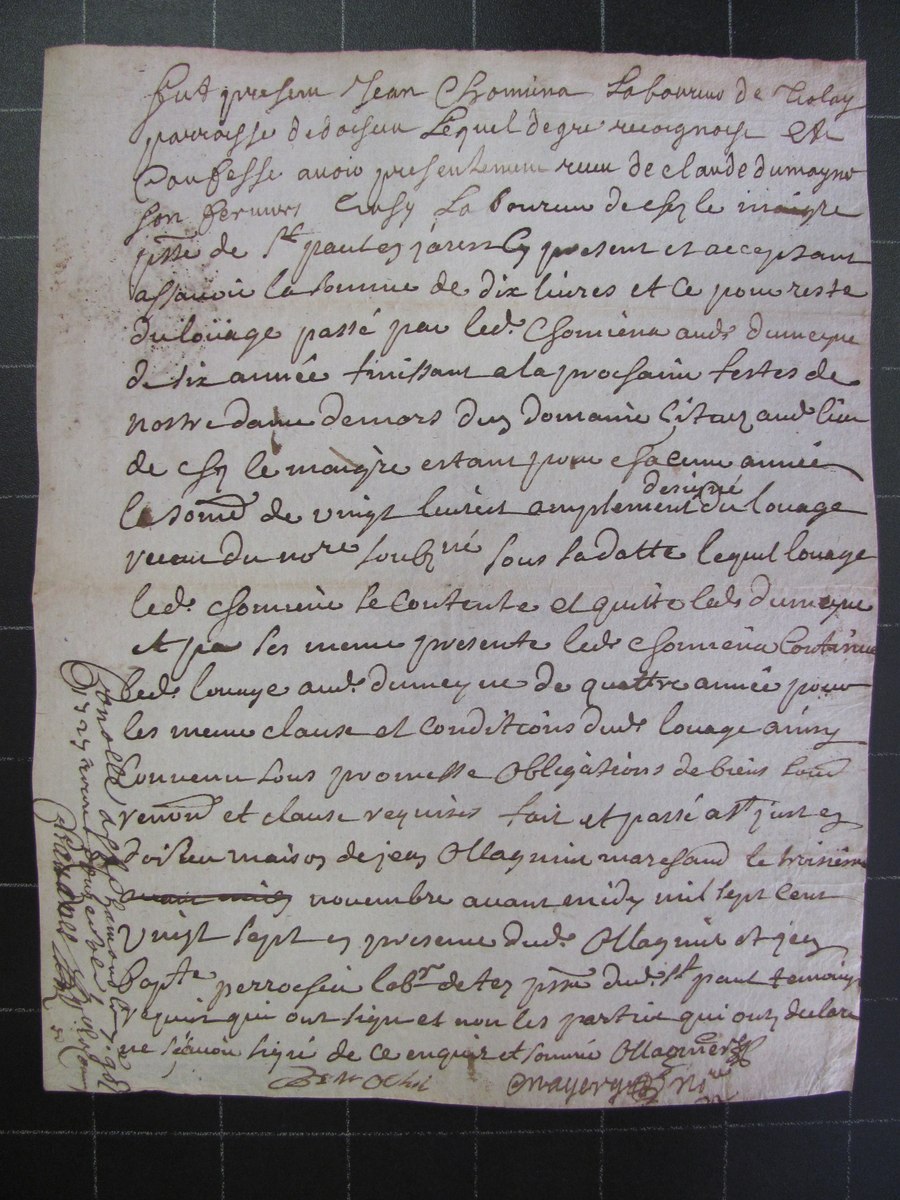 fut presem Jean Chomiena Laboureur de
parroisse de doisieu Lequel de gre recoignoist et
Confesse avoir presentement receu de claude dumayne
son Laboureur de chez le maigre
psse de St paul en jarest Cy present et acceptant
assavoir la somme de dix livres et ce pour reste
du loüage passé par led. Chomiena aud. dumeyne
de six année finissant a la prochaine festes de
nostre dame de mars dun domaine situez aud. lieu
de chez le maigre estant pour chacune année
la some de vingt livres amplement designé du louage
receu du nore soubzné sous sa datte lequel louage
led. chomiene se contente et quitte led. dumeyne
et par ses meme presente led. chomiena continue
led. louage aud. dumeyne de quattre année pour
les meme clause et conditions dud. louage ainsy
convenu sous promesse obligations de biens
renon et clause requises fait et passé a st just en
doisieu maison de jean Ollagnier marchand le troisieme
novembre avant midy mil sept cent
vingt sept en presence dud. Ollagnier et jean
bapte perrochin labr de psse dud. st paul temoins
requis qui ont signe et non les partie qui ont declare
ne sçavoir signé de ce enquis et sommé Ollagnier
mayery nre
Controllé a st chamond